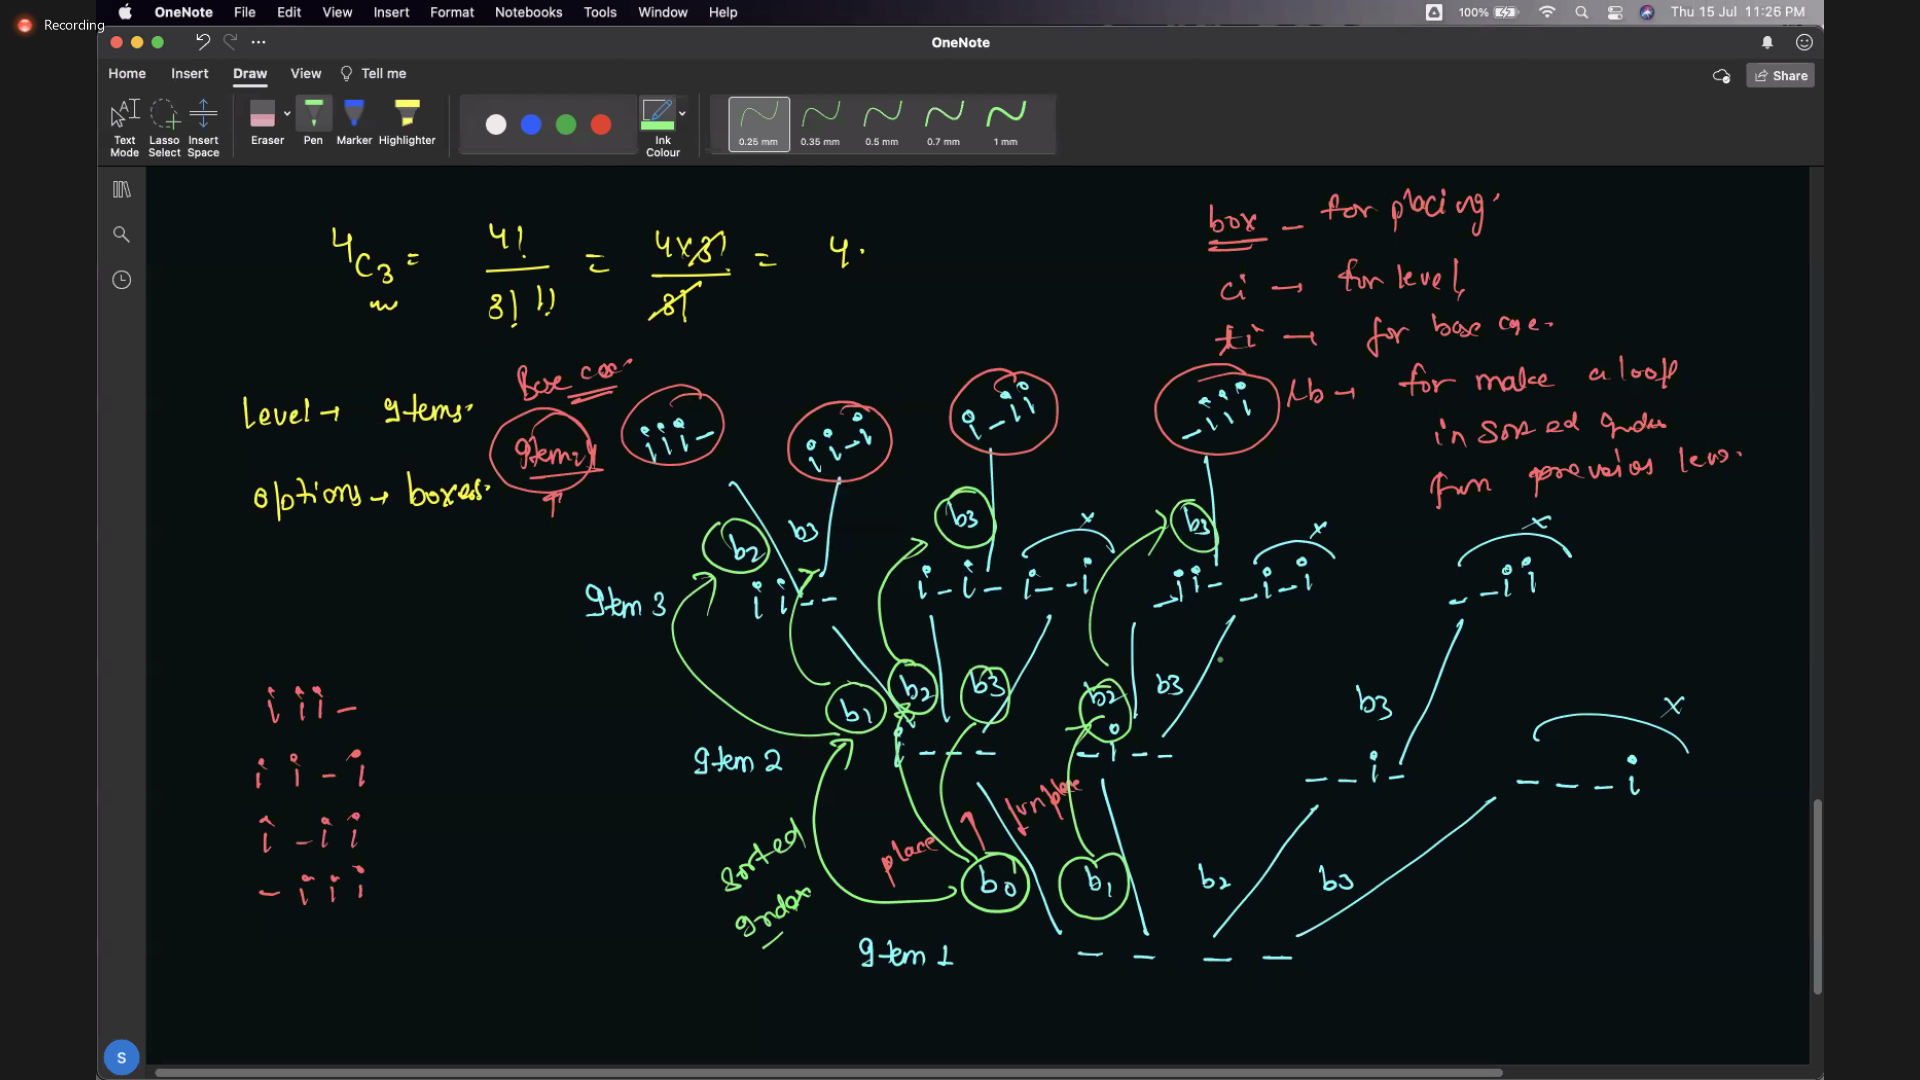 Recording
OneNote File Edit View Insert Format Notebooks Tools Window Help
100% Thu 15 Jul 11:26 PM
OneNote
Home Insert Draw View Tell me
Share
Text Mode
Lasso Select
Insert Space
Eraser
Pen
Marker
Highlighter
Ink Colour
0.25 mm 0.35 mm 0.5 mm 0.7 mm 1 mm
4C3 = 4! / 3! 1! = 4x3! / 3! = 4.
box - for placing.
ci → for level,
ti → for base case.
lb → for make a loop
in sorted index
from previous level.
Level → items.
options → boxes.
Base case
item 4
i i i -
i i - i
i - i i
- i i i
b2 b3 b3 x b3 x x
item 3
i i - - i - i - i - - i - i i - - i - i - - i i
b1 b2 b3 b2 b3 b3 x
item 2
i - - - - i - - - - i - - - - i
i i i -
i i - i
i - i i
- i i i
sorted
index
place unplace
b0 b1 b2 b3
item 1 - - - -
S